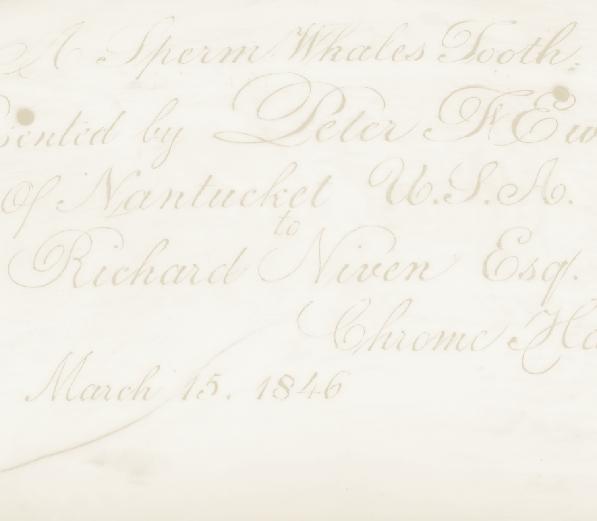 A Sperm Whales Tooth.
sented by Peter F. Ew
Of Nantucket U.S.A.
to
Richard Niven Esqr.
Chrome Ha
March 15. 1846